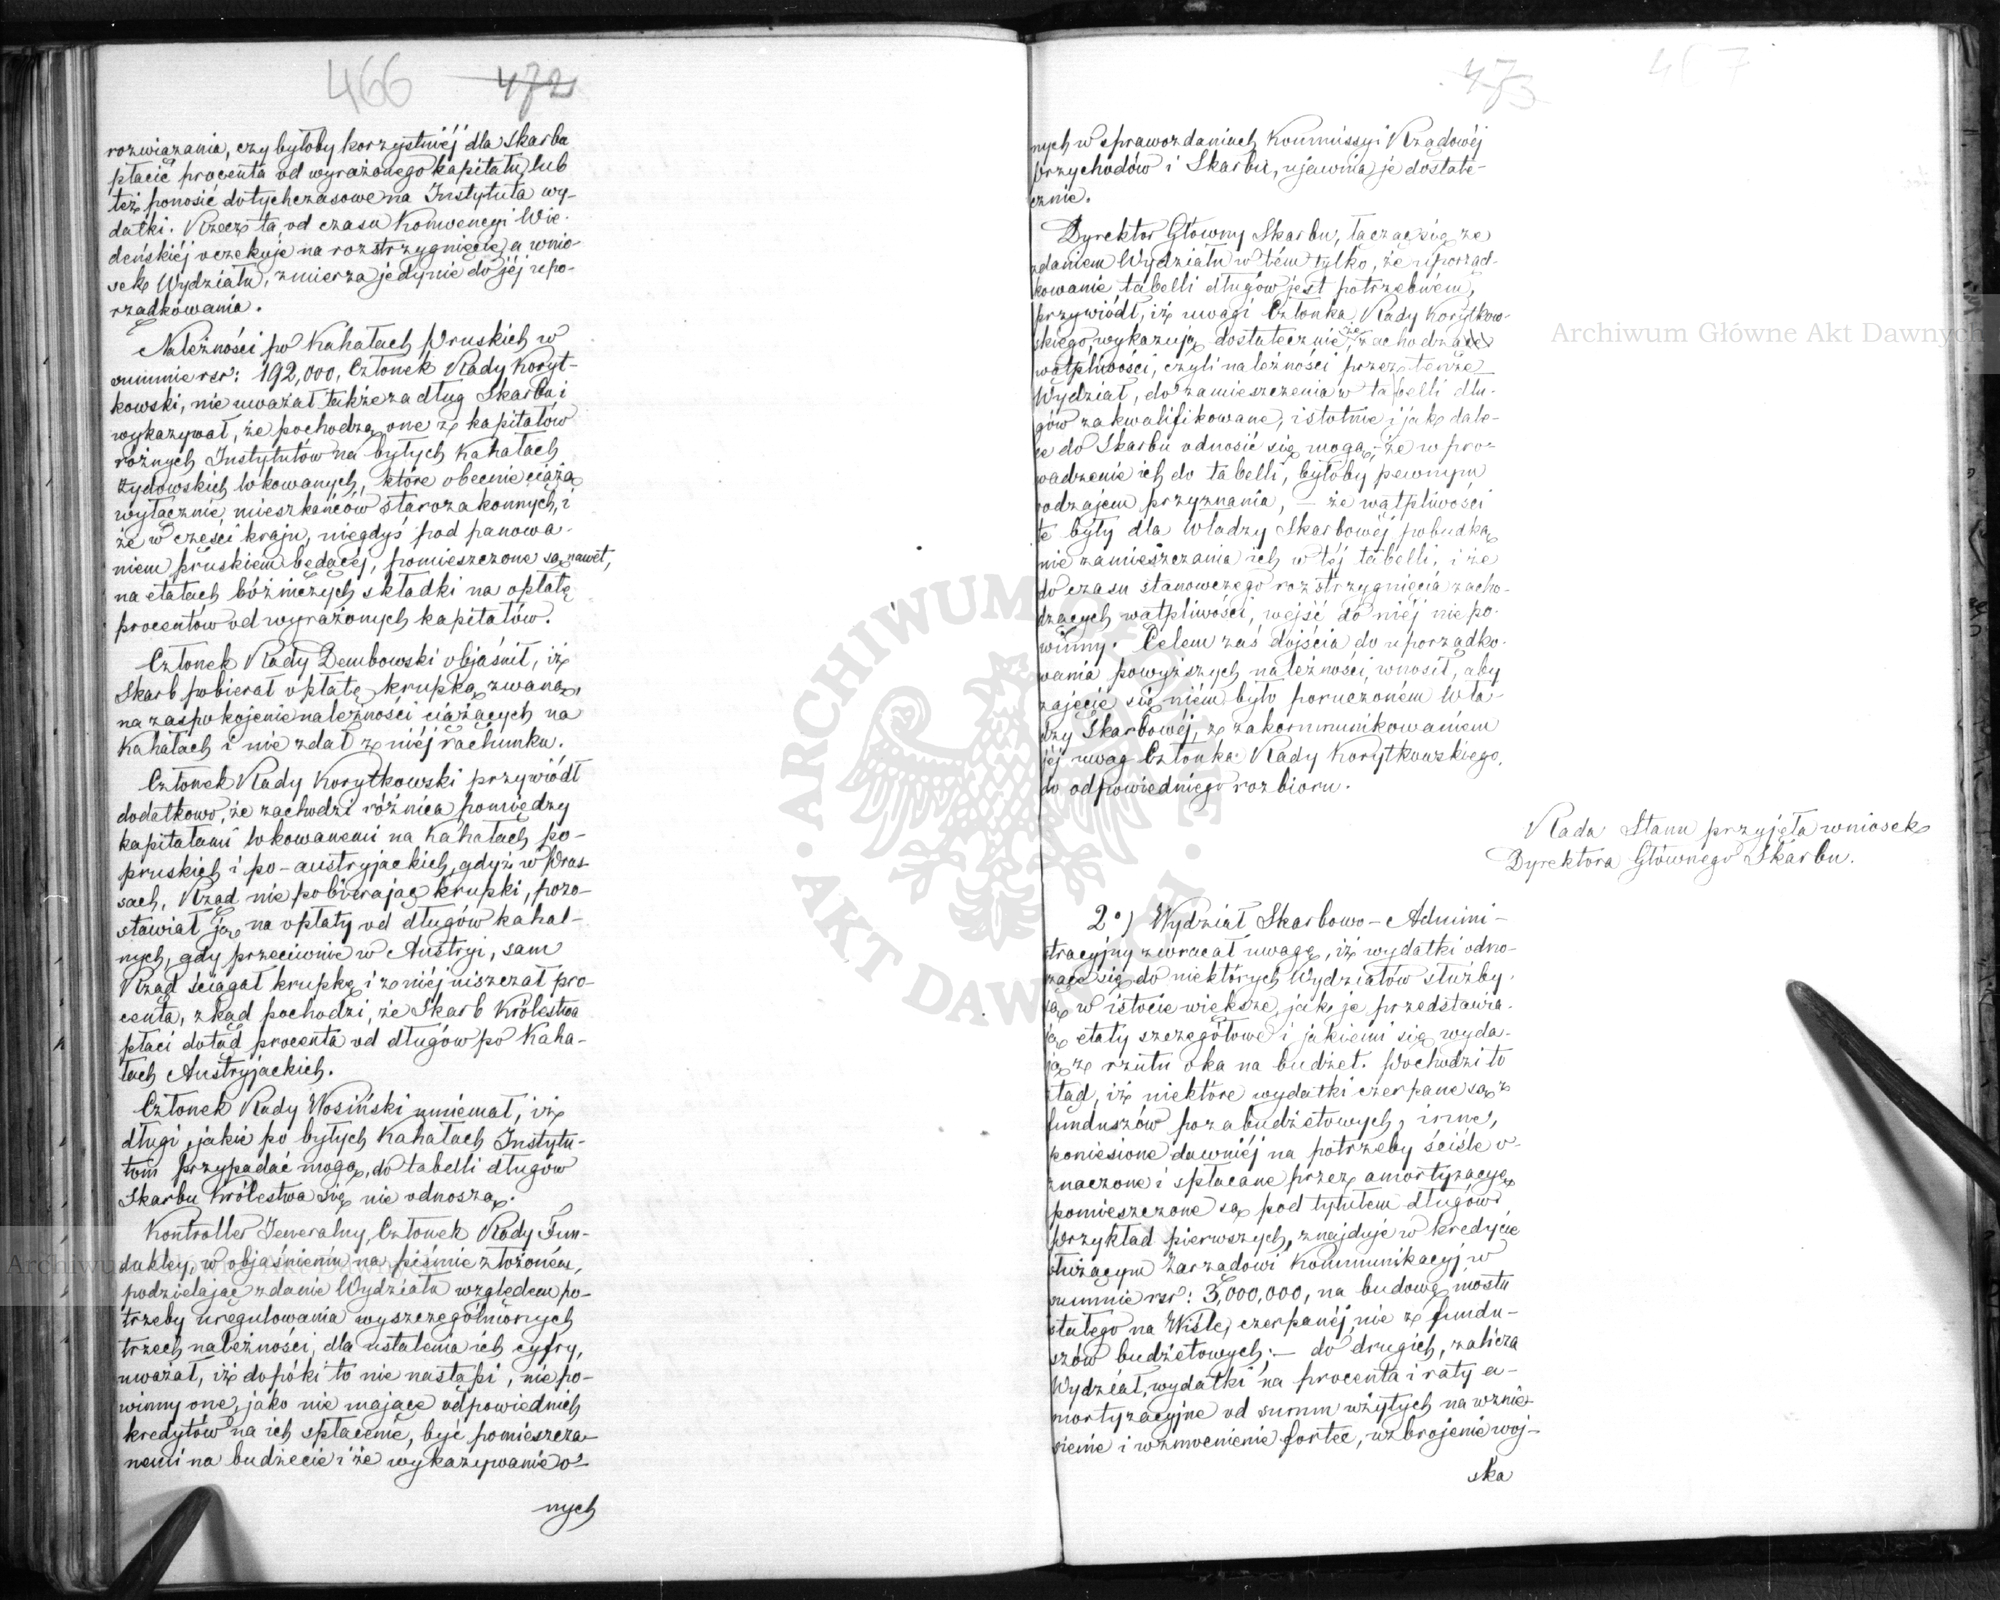 466 472
rozwiązania, czy byłoby korzystniéj dla Skarbu
płacić procenta od wyrażonego kapitału, lub
też ponosić dotychczasowe na Instytuta wy-
datki. Rzecz ta, od czasu Konwencyi Wie-
deńskiéj oczekuje na rozstrzygnięcie, a wnio-
sek Wydziału, zmierza jedynie do jéj upo-
rządkowania.
Należności po Kahałach Pruskich w
summie rsr: 192,000, Członek Rady Koryt-
kowski, nie uważał także za dług Skarbu i
wykazywał, że pochodzą one z kapitałów
różnych Instytutów na byłych Kahałach
Żydowskich lokowanych, które obecnie ciążą
wyłącznie mieszkańców starozakonnych, i
że w części kraju, niegdyś pod panowa-
niem pruskiem będącéj, pomieszczone są nawet,
na etatach bóżniczych składki na opłatę
procentów od wyrażonych kapitałów.
Członek Rady Dembowski objaśnił, iż
Skarb pobierał opłatę krupką zwaną,
na zaspokojenie należności ciążących na
Kahałach i nie zdał z niéj rachunku.
Członek Rady Korytkowski przywiódł
dodatkowo, że zachodzi różnica pomiędzy
kapitałami lokowanemi na Kahałach po-
pruskich i po-austryjackich, gdyż w Prus-
sach, Rząd nie pobierając krupki, pozo-
stawiał ją na opłaty od długów kahal-
nych, gdy przeciwnie w Austryi, sam
Rząd ściągał krupkę i z niéj niszczał pro-
centa, zkąd pochodzi, że Skarb Królestwa
płaci dotąd procenta od długów po Kaha-
łach Austryjackich.
Członek Rady Wosiński mniemał, iż
długi jakie po byłych Kahałach Instytu-
tom przypadać mogą, do tabelli długów
Skarbu Królestwa się nie odnoszą.
Kontroller Jeneralny, Członek Rady Fun-
duklej, w objaśnieniu na piśmie złożoném,
podzielając zdanie Wydziału względem po-
trzeby uregulowania wyszczególnionych
trzech należności, dla ustalenia ich cyfry,
uważał, iż dopóki to nie nastąpi, niepo-
winny one, jako nie mające odpowiednich
kredytów na ich spłacenie, być pomieszcza-
nemi na budżecie i że wykazywanie o-
nych
473 467
nych w sprawozdaniach Kommissyi Rządowéj
Przychodów i Skarbu, ujawnia je dostate-
cznie.
Dyrektor Główny Skarbu, łącząc się ze
zdaniem Wydziału w tém tylko, że uporząd-
kowanie tabelli długów jest potrzebném,
przywiódł, iż uwagi Członka Rady Korytkow-
skiego wykazują dostatecznie, że zachodzą
wątpliwości, czyli należności przez tenże
Wydział, do zamieszczenia w tabelli dłu-
gów zakwalifikowane, istotnie i jak dale-
ce do Skarbu odnosić się mogą, – że wpro-
wadzenie ich do tabelli, byłoby pewnym
rodzajem przyznania, – że wątpliwości
te były dla Władzy Skarbowéj pobudką
nie zamieszczania ich w téj tabelli, i że
do czasu stanowczego rozstrzygnięcia zacho-
dzących wątpliwości, wejść do niéj nie po-
winny. Celem zaś dojścia do uporządko-
wania powyższych należności, wnosił, aby
zajęcie się niém było poruczoném Wła-
dzy Skarbowéj, z zakommunikowaniem
jéj uwag Członka Rady Korytkowskiego,
do odpowiedniego rozbioru.
Rada Stanu przyjęła wniosek
Dyrektora Głównego Skarbu.
2o) Wydział Skarbowo-Admini-
stracyjny zwracał uwagę, iż wydatki odno-
szące się do niektórych Wydziałów służby
są w istocie większe, jak je przedstawia-
ją etaty szczegółowe i jakiemi się wyda-
ją ze rzutu oka na budżet. Pochodzi to
ztąd, iż niektóre wydatki czerpane są z
funduszów pozabudżetowych, inne,
poniesione dawniéj na potrzeby ściśle o-
znaczone i spłacane przez amortyzacyę
pomieszczone są pod tytułem długów.
Przykład pierwszych, znajduje w kredycie
służącym Zarządowi Kommunikacyj, w
summie rsr: 3,000,000, na budowę mostu
stałego na Wiśle, czerpanéj nie z fundu-
szów budżetowych; – do drugich, zalicza
Wydział, wydatki na procenta i raty a-
mortyzacyjne od summ użytych na wznie-
sienie i wzmocnienie fortec, uzbrojenie woj-
ska
Archiwum Główne Akt Dawnych
Archiwum Główne Akt Dawnych
ARCHIWUM GŁÓWNE AKT DAWNYCH